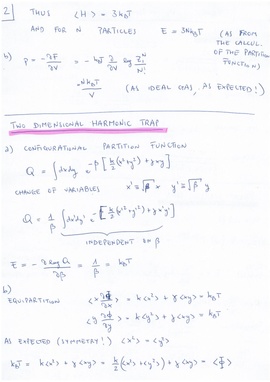 2] THUS ⟨H⟩ = 3 k_B T
AND FOR N PARTICLES E = 3N k_B T (AS FROM
THE CALCUL.
OF THE PARTITION
FUNCTION)
b) p = - ∂F/∂V = - k_B T ∂/∂V log Z_1^N/N!
= N k_B T / V (AS IDEAL GAS, AS EXPECTED!)
TWO DIMENSIONAL HARMONIC TRAP
a) CONFIGURATIONAL PARTITION FUNCTION
Q = ∫ dx dy e^{-β[k/2 (x²+y²) + γxy]}
CHANGE OF VARIABLES x' = √β x y' = √β y
Q = 1/β ∫ dx'dy' e^{-[k/2 (x'²+y'²) + γx'y']}
INDEPENDENT ON β
E = - ∂ log Q / ∂β = 1/β = k_B T
b)
EQUIPARTITION ⟨x ∂Φ/∂x⟩ = k⟨x²⟩ + γ⟨xy⟩ = k_B T
⟨y ∂Φ/∂y⟩ = k⟨y²⟩ + γ⟨xy⟩ = k_B T
AS EXPECTED (SYMMETRY!) ⟨x²⟩ = ⟨y²⟩
k_B T = k⟨x²⟩ + γ⟨xy⟩ = k/2 (⟨x²⟩+⟨y²⟩) + γ⟨xy⟩ =